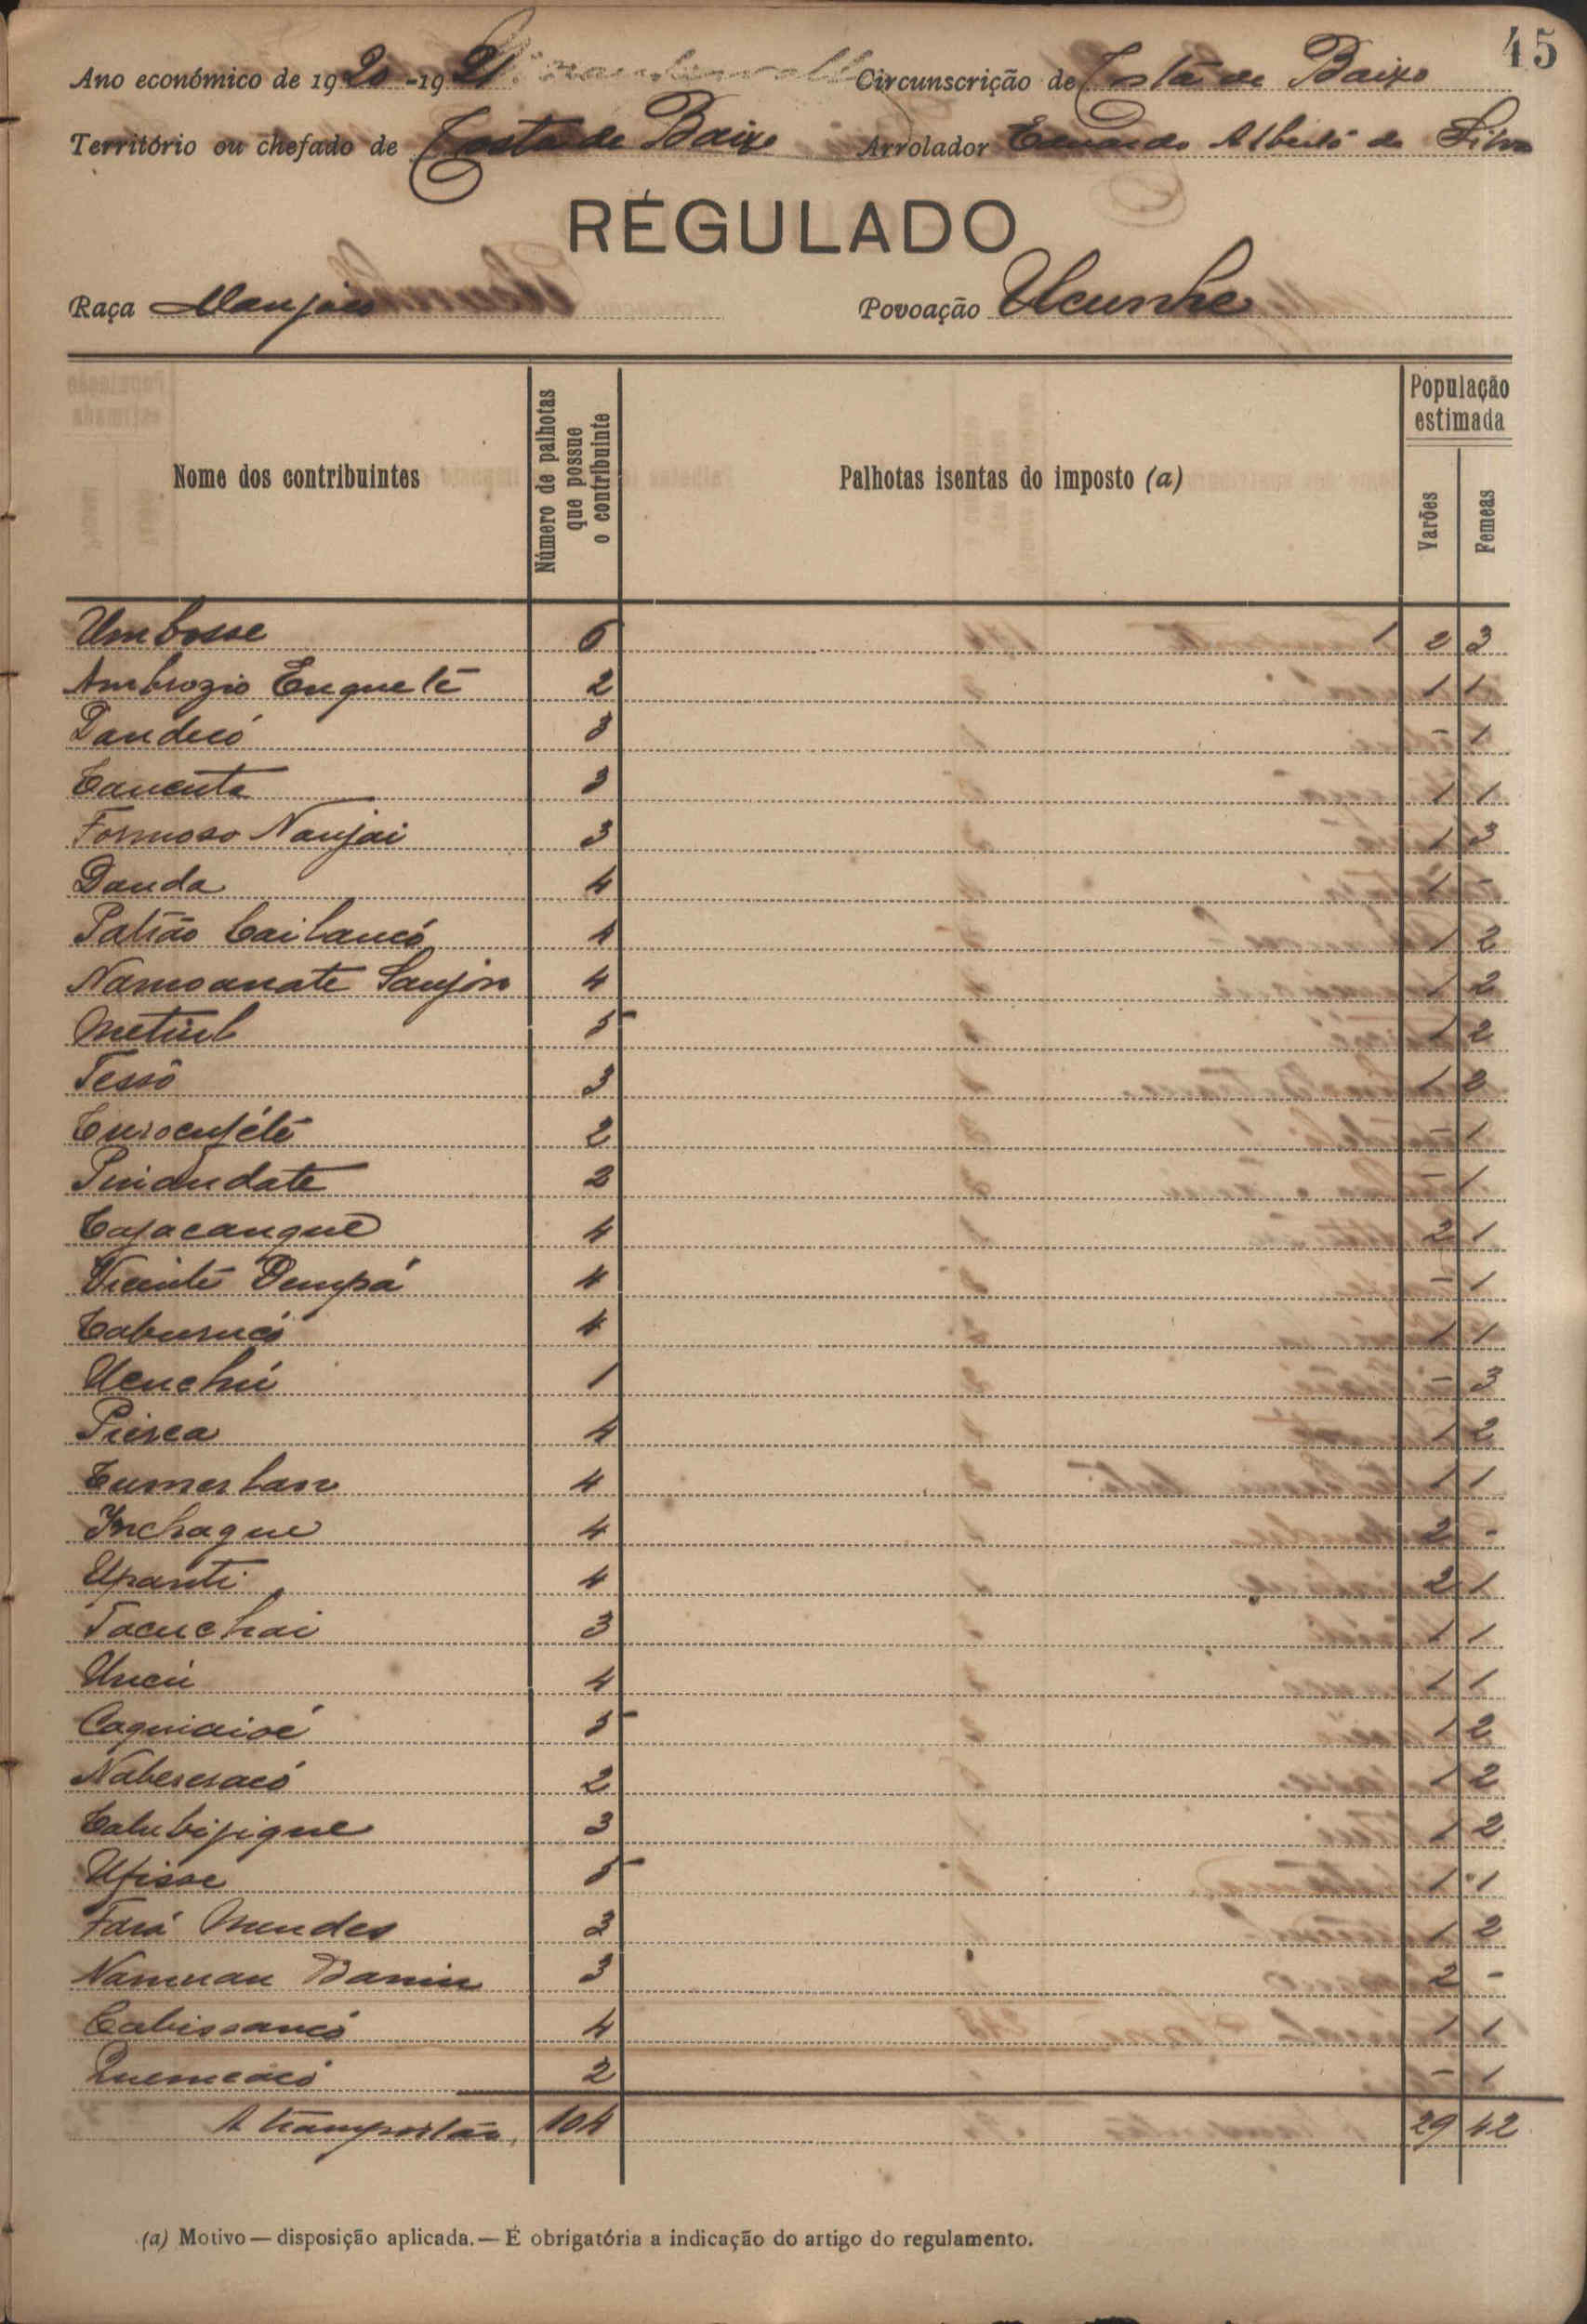 45
Ano económico de 1920-1921 Circunscrição de Costa de Baixo
Território ou chefado de Costa de Baixo Arrolador Eduardo Alberto da Silva
RÉGULADO
Raça Manjaco Povoação Ucunhe
Nome dos contribuintes Número de palhotas que possue o contribuinte Palhotas isentas do imposto (a) População estimada Varões Femeas
Umbosse 6 1 2 3
Ambrozio Enquelé 2 1 1
Dandicó 3 - 1
Cancuta 3 1 1
Formoso Naujai 3 1 3
Danda 4 1 -
Patrão Cailancó 4 1 2
Namoanate Saujon 4 1 2
Metiub 5 1 2
Tessô 3 1 2
2 - 1
Puiandate 2 - 1
Cajacanque 4 2 1
Vicente Dempá 4 - 1
Caburucó 4 1 1
Ucuchú 1 - 3
Piesca 4 1 2
4 1 1
Inchaque 4 2 -
Upanti 4 2 1
Tacuchai 3 1 1
Uncú 4 1 1
Caquiaioé 5 1 2
2 1 2
Calubijique 3 1 2
Ufisse 5 1 1
Fará Mendes 3 1 2
Namuan Banin 3 2 -
Cabissancó 4 1 1
Quemecacó 2 - 1
A transportar 104 29 42
(a) Motivo — disposição aplicada. — É obrigatória a indicação do artigo do regulamento.